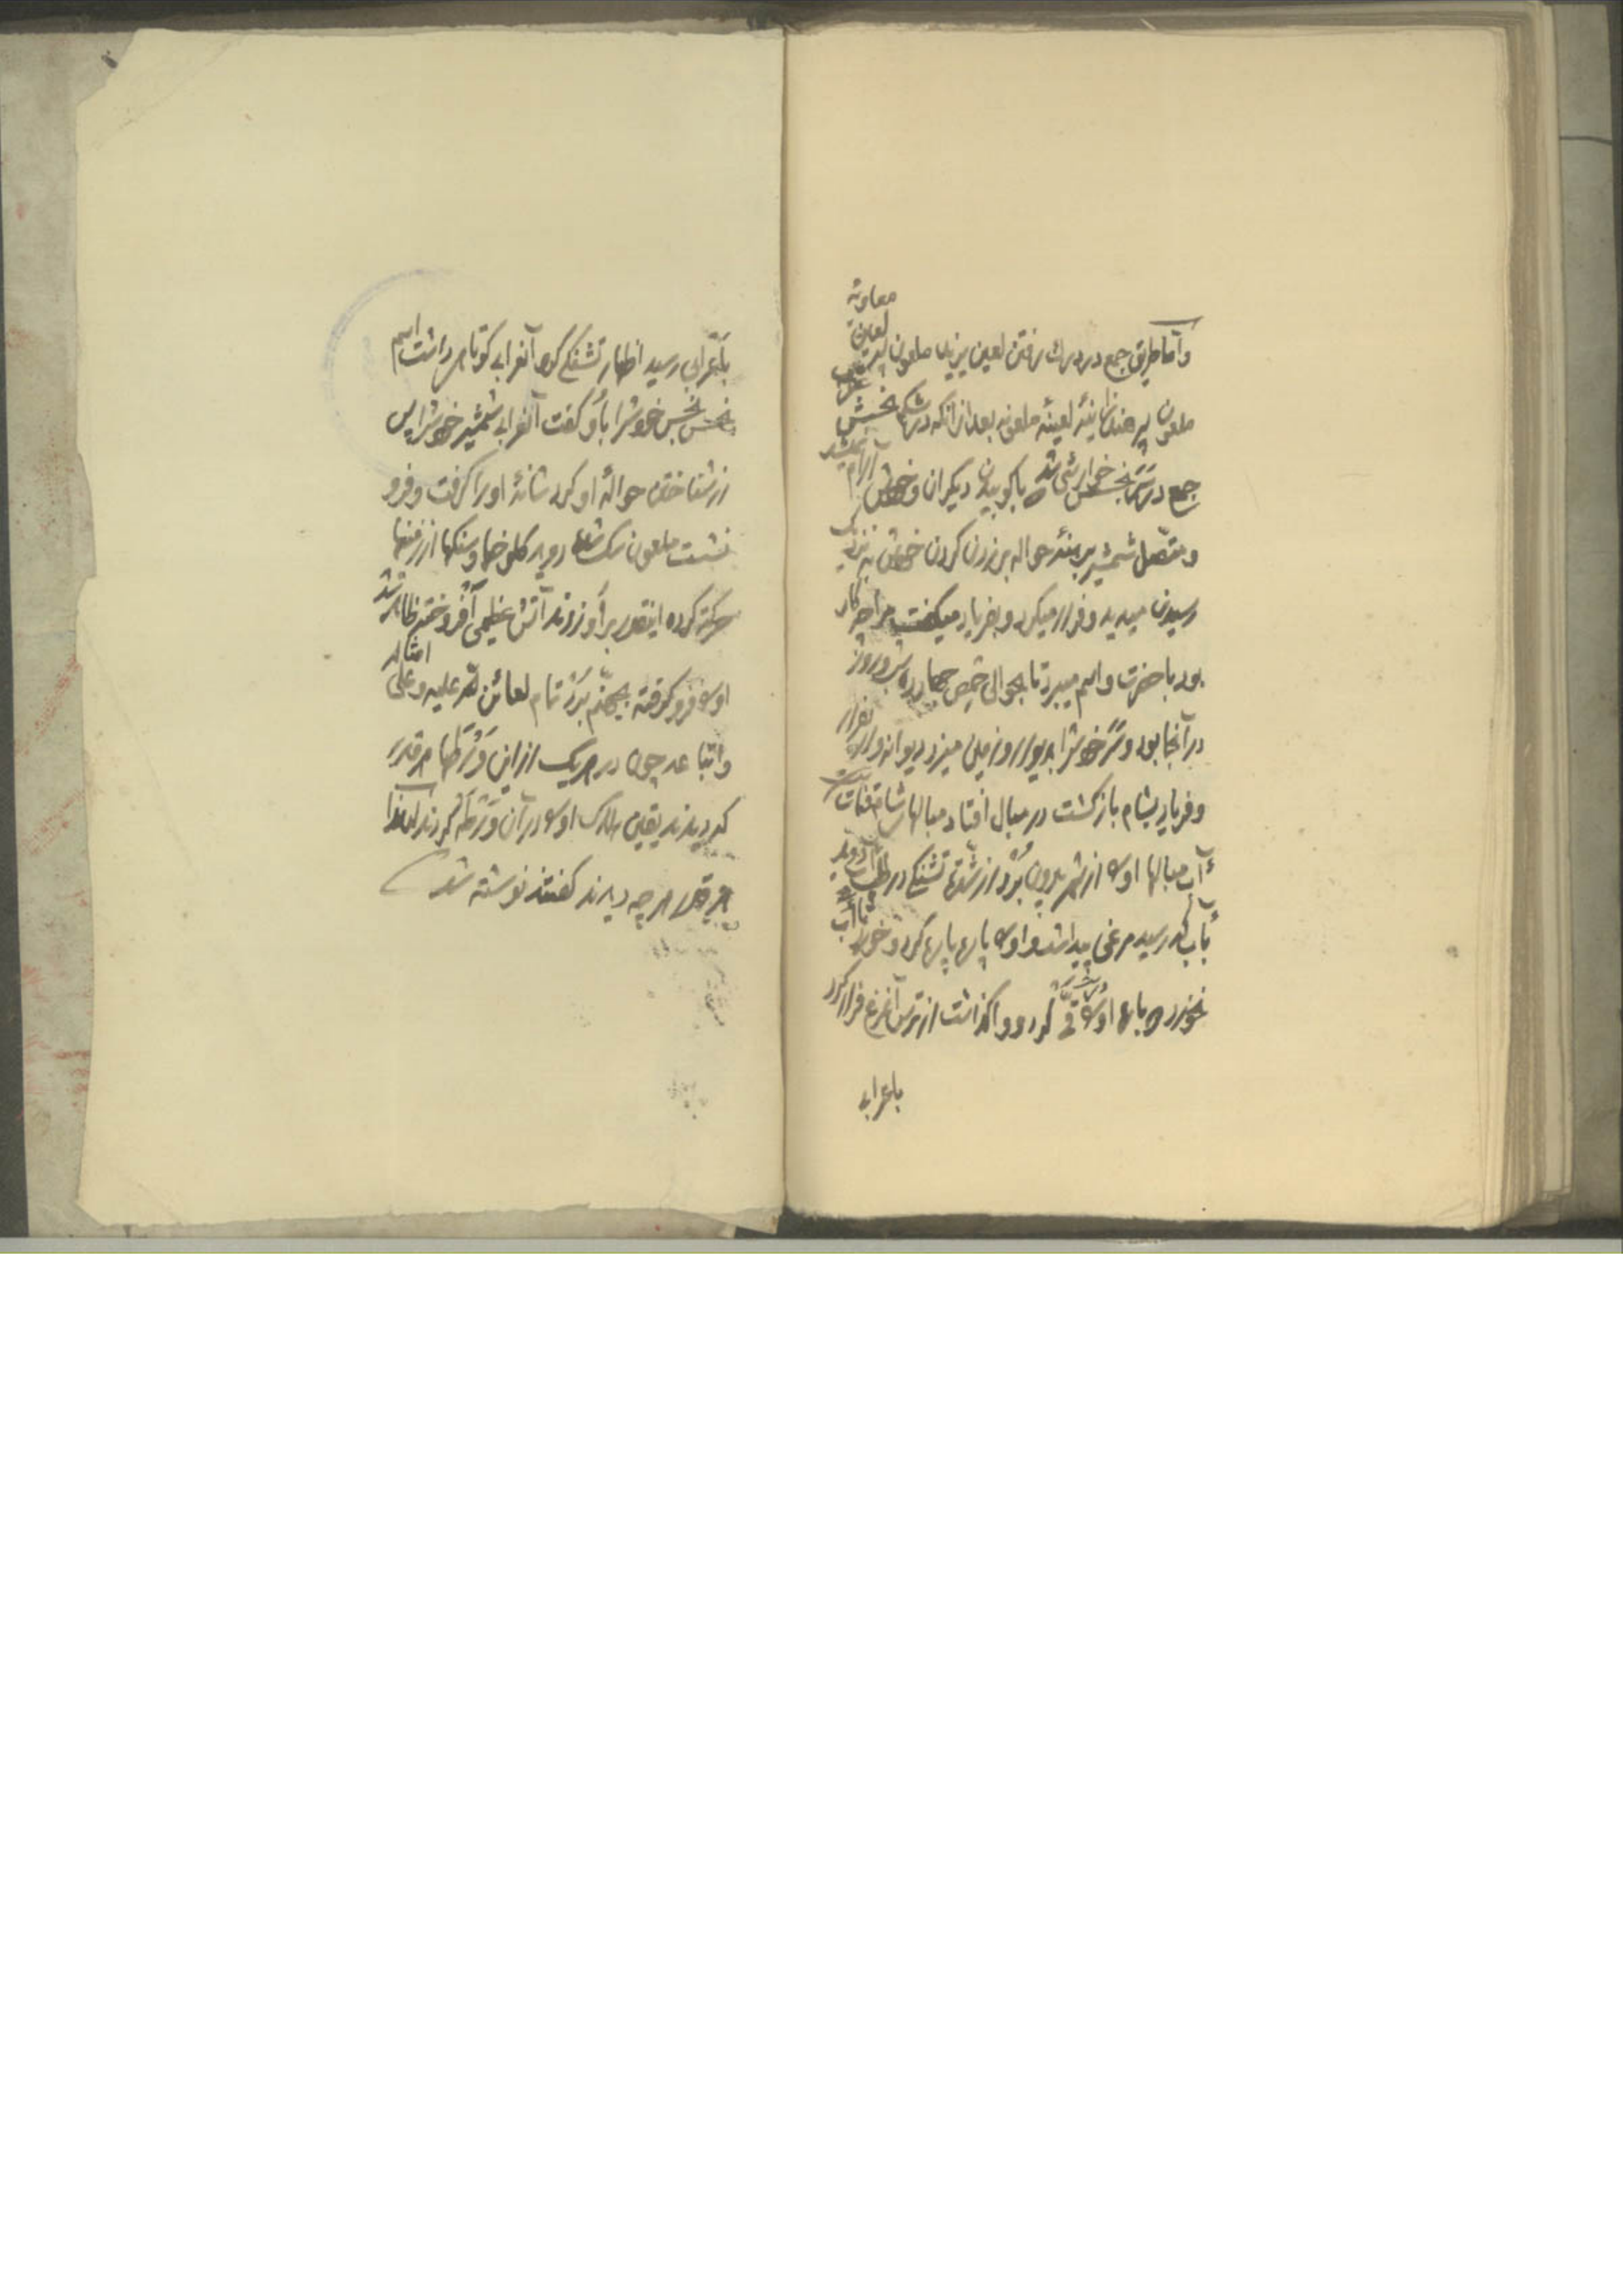 واما طریق جمع در درك رفتن لعین یزید ملعون لعین معاویه
ملعون پسر هند زانیهٔ لعینهٔ ملعونه بعد از آنکه در شکم نجسش
جمع در نجس خوارئی شد باکوبیدن دیکران و خودش آرام نمیشد
و متصل شمشیر برهنهٔ حواله بر زدن کردن خودش به نزدیک
رسیدن میدید و فرار میکرد و بفریاد میکفت مرا چه کار
بود با حضرت و اسم میبرد تا بحوالی حمص چهارده شبوروز
در آنجا بود و سر خودشرا بدیوار و زمین میزد دیوانه وار
و فریاد بشام بازکشت در مبال افتاد مبالها شام
آب مبالها اورا از شهر بیرون برد از شدة تشنکی در طلب آب دوید
بآب که رسید مرغی پیدا شد و اورا پاره پاره کرد و خورد
نخورده باره اورا قی کرد و واکذاشت از ترس آنمرغ فرار کرد
باعرابی
باعرابی رسید اظهار تشنکی کرد آنعرابی کوتاهی داشت اسم
نجس نجس خودشرا باو کفت آنعرابی شمشیر خودشرا پس
از شناختن حوالهٔ او کرد شانهٔ اورا کرفت و فرو
نشست ملعون سک شد دوید کلوخها و سنکها از زمینها
حرکة کرده اینقدر بر او زدند آتش عظیمی افروخته ظاهر شد
اورا فرو کرفته بجهنم برد تمام لعائن الله علیه وعلی امثاله
واتباعه چون در هریک از این ورطها هر قدر
کردیدند یقین هلاک اورا در آن ورطه کردند لهذا
هر قدر هرچه دیدند کفتند نوشته شد